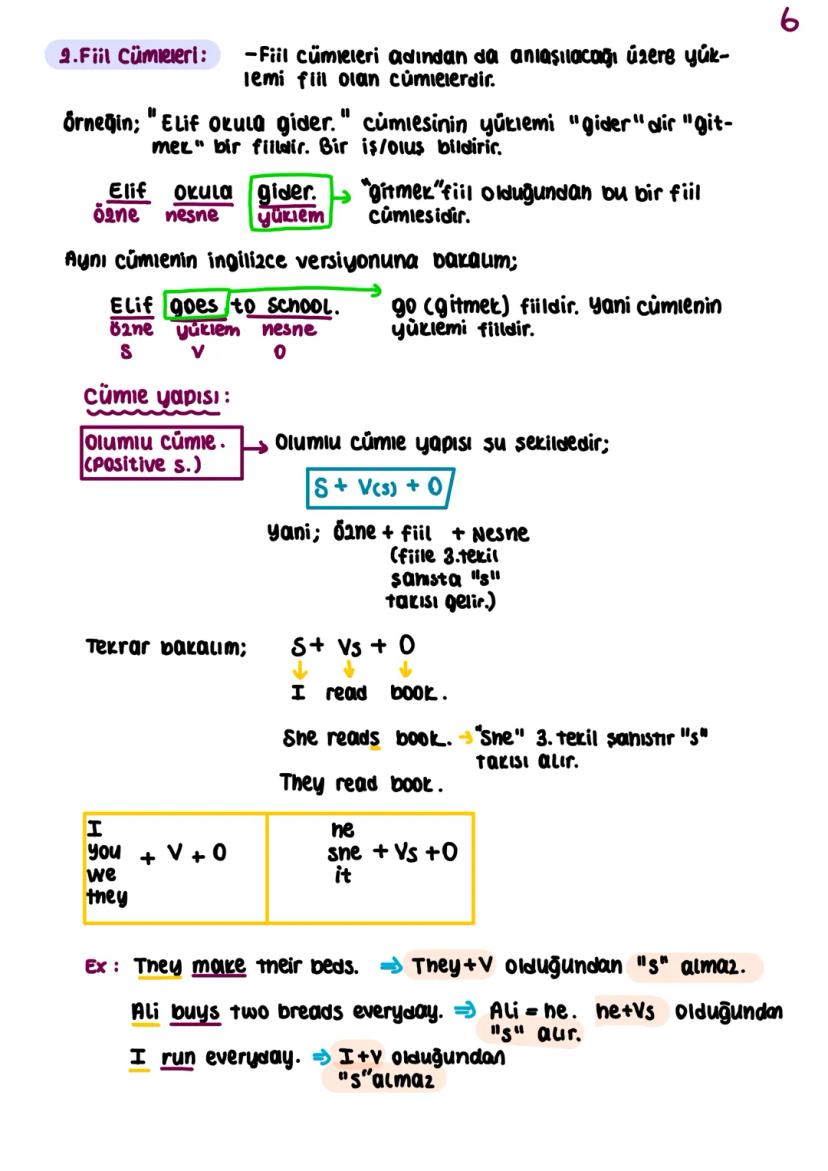 6
2.Fiil Cümleleri: -Fiil cümleleri adından da anlaşılacağı üzere yük-
lemi fiil olan cümlelerdir.
Örneğin; "Elif okula gider." cümlesinin yüklemi "gider" dir "git-
mek" bir fiildir. Bir iş/oluş bildirir.
Elif okula gider. "gitmek" fiil olduğundan bu bir fiil
özne nesne yüklem cümlesidir.
Aynı cümlenin ingilizce versiyonuna bakalım;
Elif goes to school. go (gitmek) fiildir. Yani cümlenin
özne yüklem nesne yüklemi fiildir.
S V O
Cümle yapısı:
Olumlu cümle. Olumlu cümle yapısı şu şekildedir;
(Positive s.)
S + V(s) + O
Yani; Özne + fiil + Nesne
(fiile 3.tekil
şahısta "s"
takısı gelir.)
Tekrar bakalım; S+ Vs + O
I read book.
She reads book. "She" 3. tekil şahıstır "s"
takısı alır.
They read book.
I he
you + V + O she + Vs +O
we it
they
Ex: They make their beds. ⇒ They+V olduğundan "s" almaz.
Ali buys two breads everyday. ⇒ Ali = he. he+Vs olduğundan
"s" alır.
I run everyday. ⇒ I+V olduğundan
"s" almaz